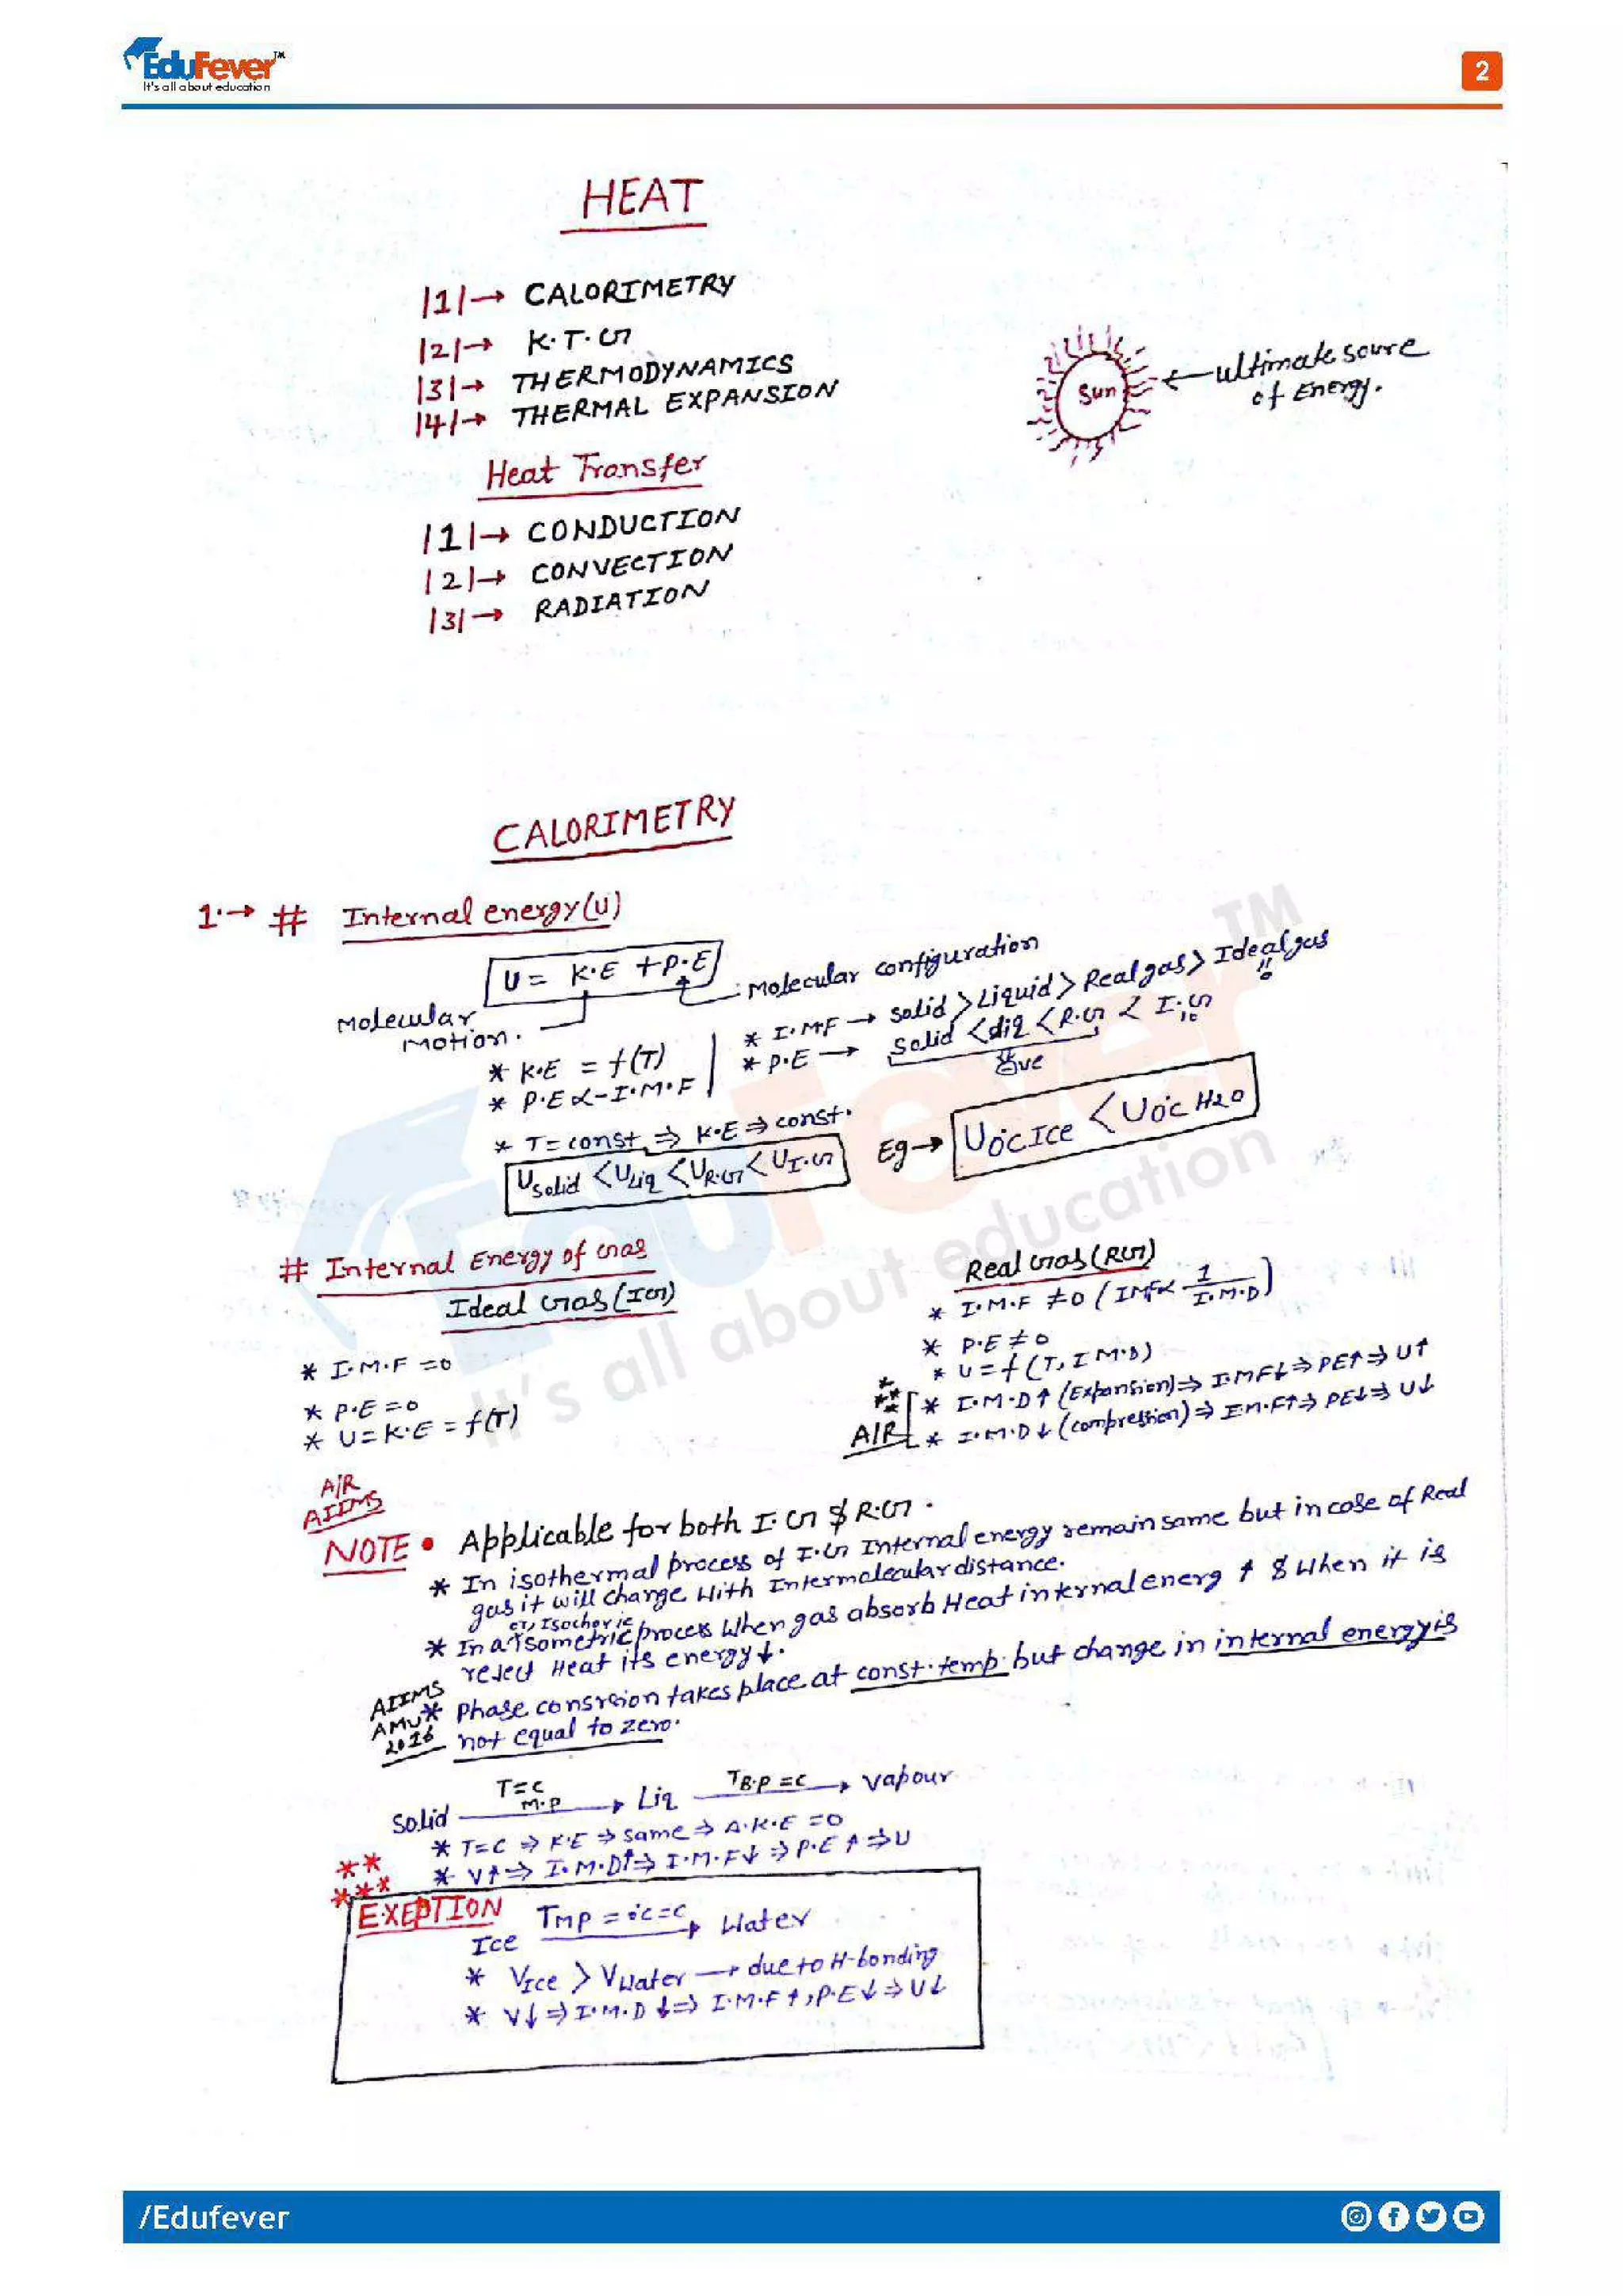 EduFever™
It's all about education
2
HEAT
|1|→ CALORIMETRY
|2|→ K.T.G
|3|→ THERMODYNAMICS
|4|→ THERMAL EXPANSION
Sun ← ultimate soure
of Energy.
Heat Transfer
|1|→ CONDUCTION
|2|→ CONVECTION
|3|→ RADIATION
CALORIMETRY
1.→ # Internal energy (U)
U = K.E + P.E
Molecular configuration
Molecular
Motion.
* K.E = f(T)
* P.E ∝ -I.M.F
* I.M.F → Solid > Liquid > Real gas > Ideal gas
* P.E → Solid < Liq < R.G < I.G
⊖ve
* T = const ⇒ K.E ⇒ const.
U Solid < U Liq < U R.G < U I.G
Eg → U 0°C Ice < U 0°C H2O
# Internal Energy of Gas
Ideal Gas (IG)
* I.M.F = 0
* P.E = 0
* U = K.E = f(T)
Real Gas (RG)
* I.M.F ≠ 0 (IMF ∝ 1/I.M.D)
* P.E ≠ 0
* U = f(T, I M.D)
* I.M.D ↑ (Expansion) ⇒ I.MF↓ ⇒ PE↑ ⇒ U↑
AIR * I.M.D ↓ (compression) ⇒ I.M.F↑ ⇒ PE↓ ⇒ U↓
AIR
AIIMS
NOTE • Applicable for both I.G & R.G.
* In isothermal process of I.G Internal energy remain same but in case of Real
gas it will change with Intermolecular distance.
or, Isochoric
* In a Isometric process when gas absorb Heat internal energ ↑ & when it is
reject Heat its energy ↓.
AIIMS
AMU
2016
* Phase consrsion takes place at const. temp. but change in internal energy is
not equal to zero.
Solid T=C M.P → Liq T B.P = C → Vapour
* T=C ⇒ K.E ⇒ same ⇒ Δ.K.E = 0
* V↑ ⇒ I.M.D↑ ⇒ I.M.F↓ ⇒ P.E↑ ⇒ U
** ***
EXEPTION
Ice TMP = 0°C = C → Water
* VIce > VWater → due to H-bonding
* V↓ ⇒ I.M.D ↓ ⇒ I.M.F↑, P.E↓ ⇒ U↓
/Edufever